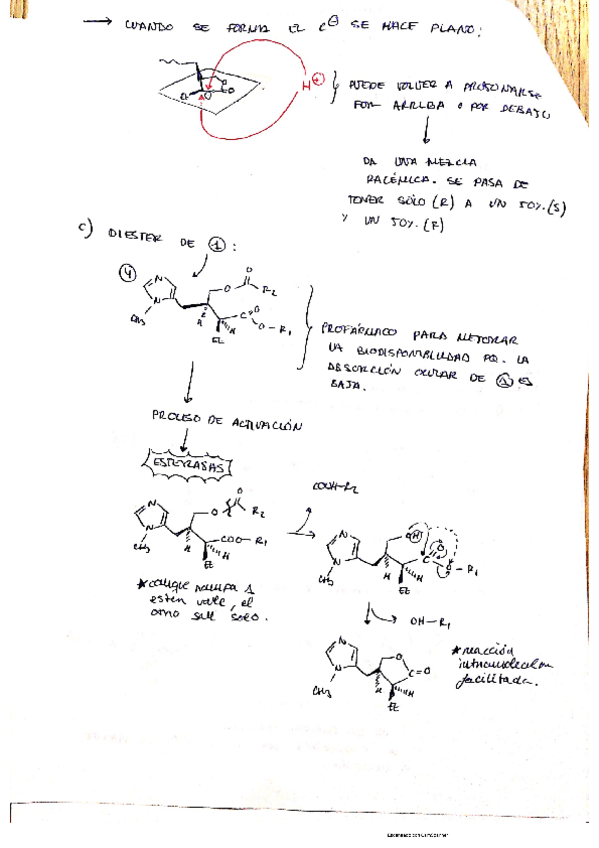 → CUANDO SE FORMA EL C⊖ SE HACE PLANO:
H⊕
PUEDE VOLVER A PROTONARSE
POR ARRIBA O POR DEBAJO
DA UNA MEZCLA
RACÉMICA. SE PASA DE
TENER SÓLO (R) A UN 50%.(S)
Y UN 50%.(R)
C) DIESTER DE ①:
④
N
N
CH3
O
O
R2
H
H
Et
C
O
O-R1
PROFÁRMACO PARA MEJORAR
LA BIODISPONIBILIDAD PQ. LA
ABSORCIÓN OCULAR DE ① ES
BAJA.
PROCESO DE ACTIVACIÓN
ESTERASAS
COOH-R2
N
N
CH3
O
O
R2
COO-R1
H
H
Et
N
N
CH3
OH
C
O
O-R1
H
H
Et
*aunque rompa 1
ester vale, el
otro sale solo.
OH-R1
N
N
CH3
O
C=O
H
H
Et
*reacción
intramolecular
facilitada.
Escaneado con CamScanner